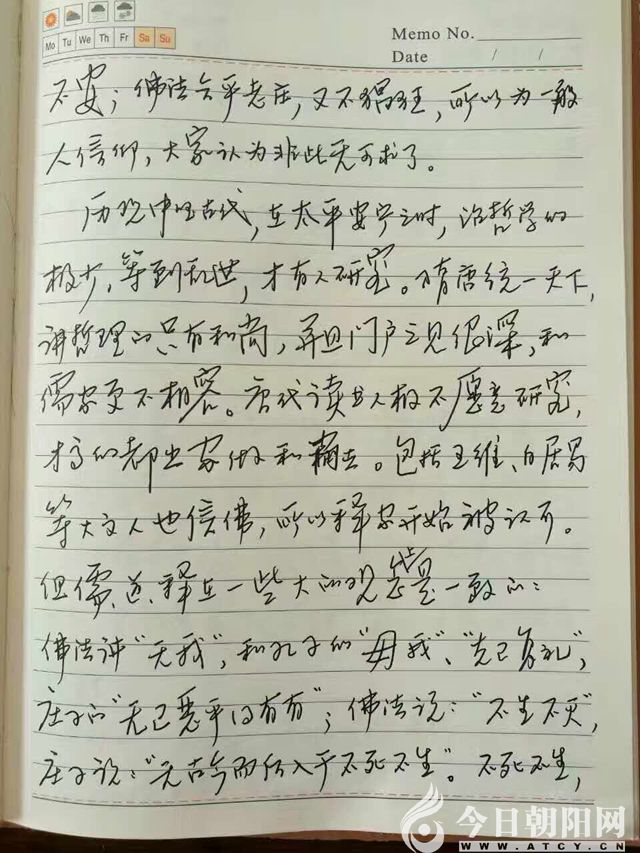 Memo No.
Mo Tu We Th Fr Sa Su
Date / /
不安；佛法合乎老庄，又不猖狂，所以为一般
人信仰，大家认为非此无可求了。
历观中国古代，在太平安宁之时，治哲学的
极少，等到乱世，才有人研究。隋唐统一天下，
讲哲理的只有和尚，并且门户之见很深，和
儒家更不相容。唐代读书人极不愿意研究，
才高的都出家做和尚去。包括王维、白居易
等大文人也信佛，所以释家开始被认可。
但儒、道、释在一些大的观点是一致的：
佛法讲“无我”，和孔子的“毋我”、“克己复礼”，
庄子的“无己恶乎得有有”；佛法说：“不生不灭”，
庄子说：“无古今而后入于不死不生”。不死不生，
今日朝阳网
WWW.ATCY.CN